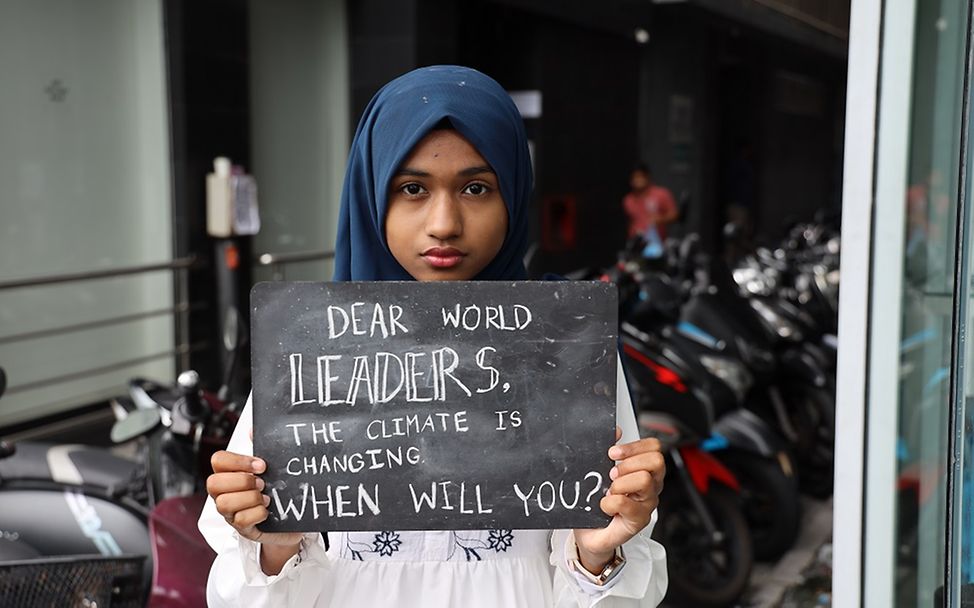 DEAR WORLD
LEADERS,
THE CLIMATE IS
CHANGING.
WHEN WILL YOU?